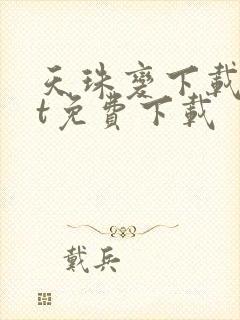 天珠變下載
t免費下載
戴兵